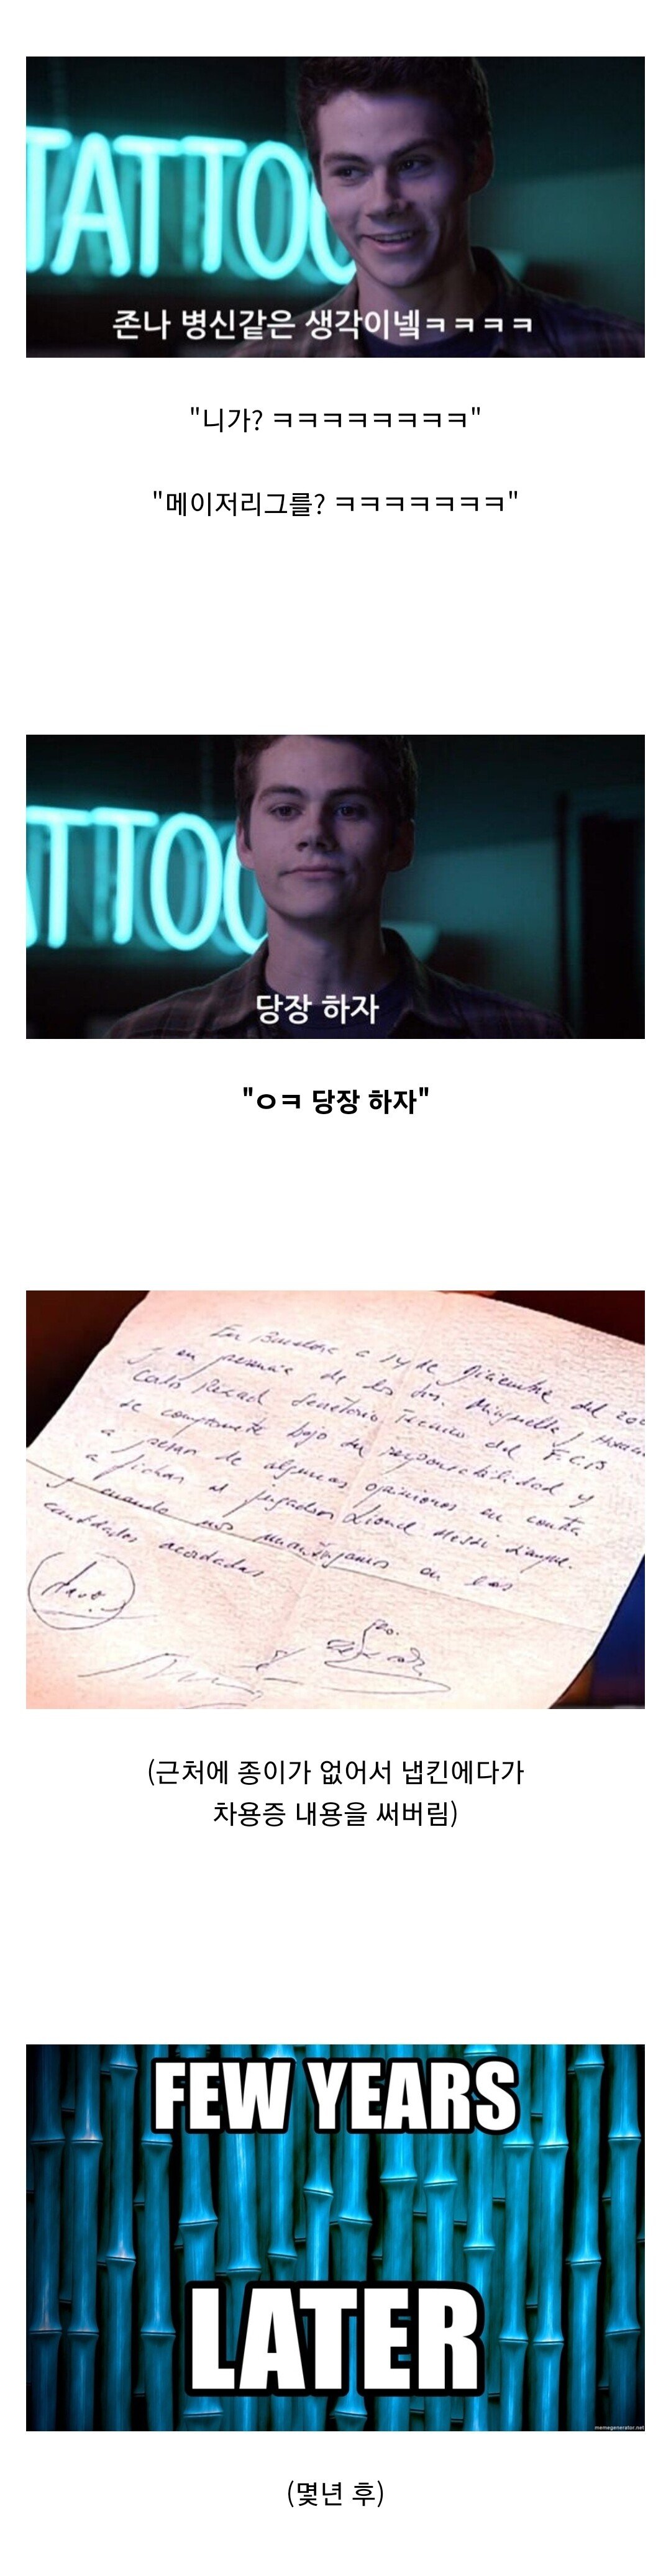 TATTOO
존나 병신같은 생각이넼ㅋㅋㅋㅋ
"니가? ㅋㅋㅋㅋㅋㅋㅋㅋ"
"메이저리그를? ㅋㅋㅋㅋㅋㅋㅋ"
ATTOO
당장 하자
"ㅇㅋ 당장 하자"
En Barcelona a 14 de Diciembre del 20
y en presencia de los Srs. Minguella y Horacio
Carlos Rexach Secretario Técnico del F.C.B
se compromete bajo su responsabilidad y
a pesar de algunas opiniones en contra
a fichar al jugador Lionel Messi siempre
y cuando nos mantengamos en las
cantidades acordadas
(근처에 종이가 없어서 냅킨에다가
차용증 내용을 써버림)
FEW YEARS
LATER
memegenerator.net
(몇년 후)